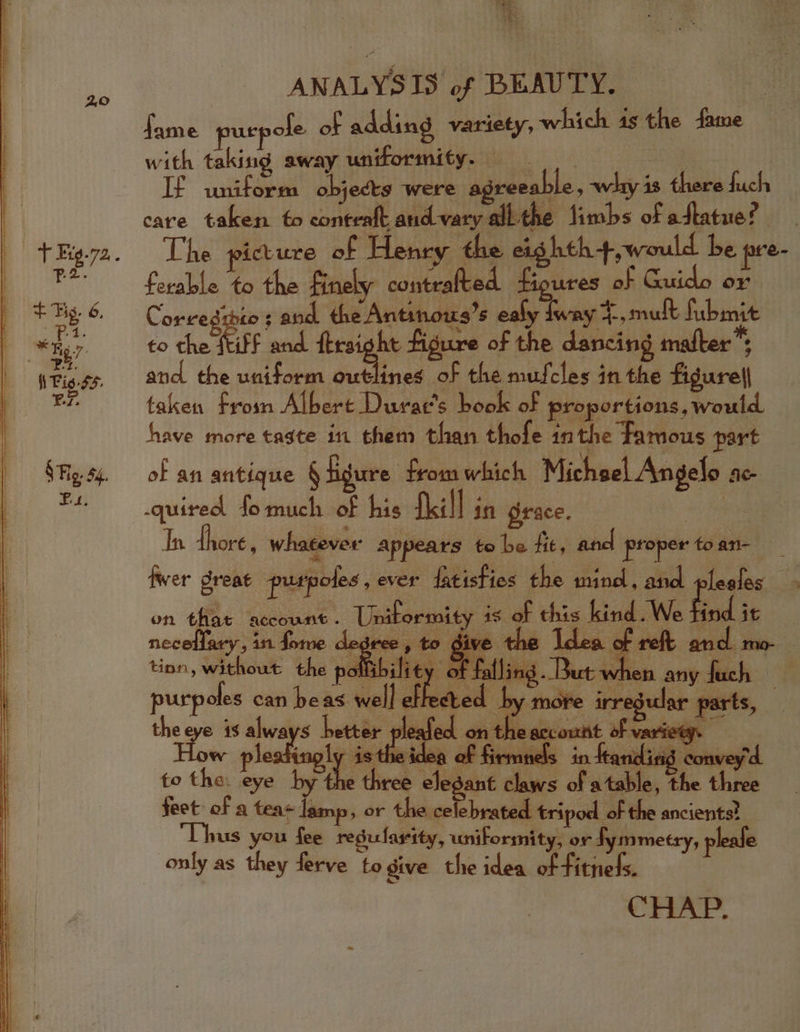 20
ANALYSIS of BEAUTY.
ſame purpoſe of adding variety, which is the ſame
with taking away uniformity.
If uniform objects were agreeable, why is there ſuch
care taken to contraſt and vary all the limbs of a ſtatue?
† Fig. 72. P. 2.
The picture of Henry the eighth †, would be pre-
ferable to the finely contraſted figures of Guido or
‡ Fig. 6. P. 1.
Correggio; and the Antinous's eaſy ſway ‡, muſt ſubmit
* Fig. 7. P. 1.
to the ſtiff and ſtraight figure of the dancing maſter *;
|| Fig. 55. P. 1.
and the uniform outlines of the muſcles in the figure ||
taken from Albert Durae's book of proportions, would
have more taste in them than thoſe in the famous part
§ Fig. 54. P. 1.
of an antique § figure from which Michael Angelo ac-
quired ſo much of his ſkill in grace.
In ſhort, whatever appears to be fit, and proper to an-
ſwer great purpoſes, ever ſatisfies the mind, and pleaſes
on that account. Uniformity is of this kind. We find it
neceſſary, in ſome degree, to give the Idea of reſt and mo-
tion, without the poſſibility of falling. But when any ſuch
purpoſes can be as well effected by more irregular parts,
the eye is always better pleaſed on the account of variety.
How pleaſingly is the idea of firmneſs in ſtanding convey'd
to the eye by the three elegant claws of a table, the three
feet of a tea-lamp, or the celebrated tripod of the ancients?
Thus you ſee regularity, uniformity, or ſymmetry, pleaſe
only as they ſerve to give the idea of fitneſs.
CHAP.